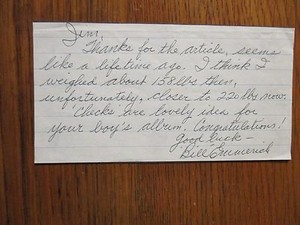 Jim,
Thanks for the article, seems
like a lifetime ago. I think I
weighed about 158 lbs then,
unfortunately, closer to 220 lbs now.
Checks are lovely idea for
your boy's album. Congratulations!
Good luck —
Bill Emmerich